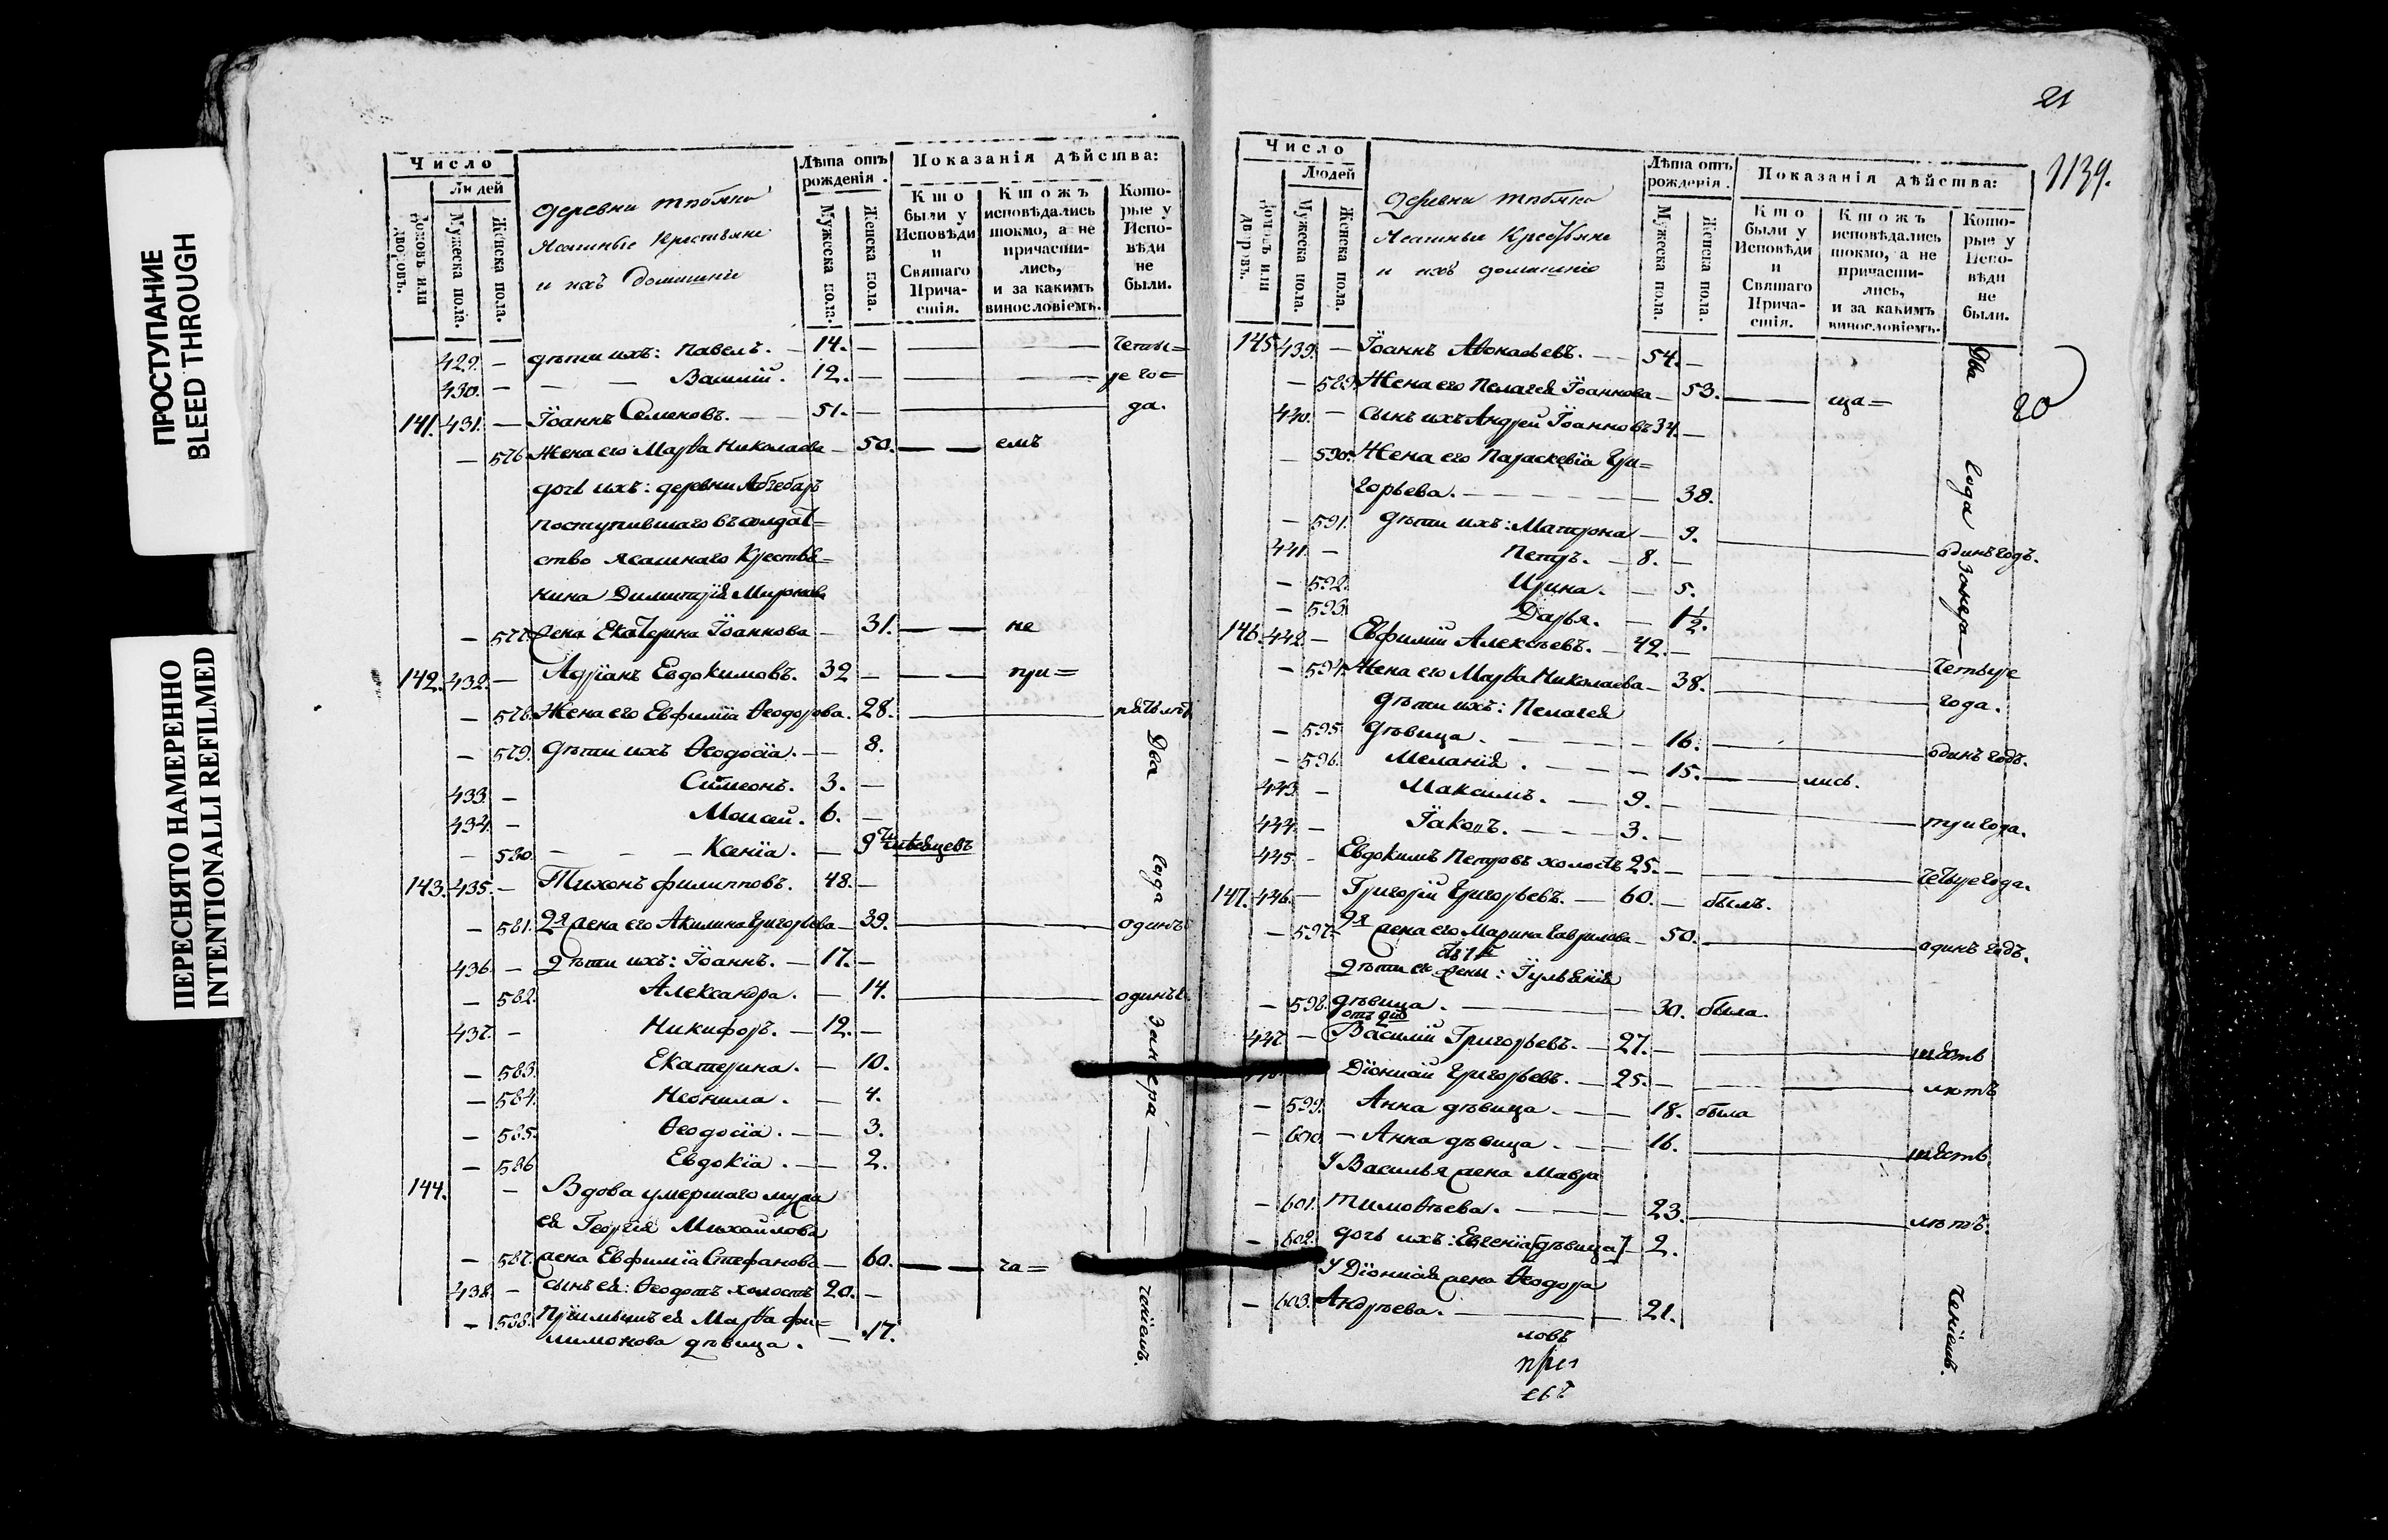 ПРОСТУПАНИЕ
BLEED THROUGH
ПЕРЕСНЯТО НАМЕРЕННО
INTENTIONALLI REFILMED
Число
Людей
домовъ или дворовъ.
Мужеска пола.
Женска пола.
деревни
Ясашные Крестьяне
и ихъ домашніе
Лѣта отъ рожденія.
Мужеска пола.
Женска пола.
Показанія дѣйства:
Кто были у Исповѣди и Святаго Причастія.
Ктожъ исповѣдались токмо, а не причастились, и за какимъ винословіемъ.
Которые у Исповѣди не были.
429. — дѣти ихъ: Павелъ. — 14. — четы=
430. — — — Василій. 12. — ре го=
141. 431. — Іоаннъ Семеновъ. — 51. — да.
— 576. Жена его Марѳа Николаева — 50. — — емъ
дочь ихъ: деревни
поступившаго въ солдат=
ство ясашнаго Крестья=
нина Димитрія Миронова
— 577. жена Екатерина Іоаннова — 31. — — не
142. 432. — Адріанъ Евдокимовъ. 32 — — — при=
— 578. Жена его Евфимія Ѳеодорова. 28. — пять лѣтъ
— 579. Дѣти ихъ Ѳеодосія. — 8. Два
433. — Симеонъ. 3. —
434. — 6. —
— 580. — — — Ксенія. — 9
143. 435. — Тихонъ Филипповъ. 48. — года
— 581. 2я жена его Акилина Григорьева — 39. — одинъ
436. — Дѣти ихъ: Іоаннъ. — 17. —
— 582. Александра. — 14. — одинъ
437. — Никифоръ. — 12. — за
— 583. Екатерина. — 10. нера
— 584. Неонила. — 4.
— 585. Ѳеодосія. — 3.
— 586. Евдокія. — 2.
144. — Вдова умершаго мужа
ея Георгія Михайлова
— 587. жена Евфимія Стефанова — 60. — — ча=
438. — сынъ ея: Ѳеодотъ холостъ 20. —
— 588. Пріимышъ ея Марѳа Фи=
лимонова дѣвица. — 17. ченіемъ.
21
1139.
20
Число
Людей
домовъ или дворовъ.
Мужеска пола.
Женска пола.
Деревни
Ясашные Крестьяне
и ихъ домашніе
Лѣта отъ рожденія.
Мужеска пола.
Женска пола.
Показанія дѣйства:
Кто были у Исповѣди и Святаго Причастія.
Ктожъ исповѣдались токмо, а не причастились, и за какимъ винословіемъ.
Которые у Исповѣди не были.
145. 439. — Іоаннъ 54. — Два
— 589. Жена его Пелагея Іоаннова — 53. — — ща=
440. — сынъ ихъ Андрей Іоанновъ 34. —
— 590. Жена его Параскевіа Гри=
горьева. — 38. года
— 591. Дѣти ихъ: Матрона — 9. — одинъ годъ.
441. — Петръ. — 8. —
— 592. Ирина. — 5. за нера
— 593. Дарья. — 1½.
146. 442. — Евфимій Алексѣевъ. — 42. — четыре
— 594. Жена его Марѳа Николаева — 38. — года.
Дѣти ихъ: Пелагея
— 595. Дѣвица. — 16. — одинъ годъ.
— 596. Меланія. — 15. — — лись.
443. — Максимъ. — 9. — три года.
444. — Іаковъ. — 3. —
445. — Евдокимъ Петровъ холостъ 25. — четыре года.
147. 446. — Григорій Григорьевъ. — 60. — былъ.
— 597. 2я жена его Марина Гаврилова — 50. — одинъ годъ.
Дѣти жены: Іуліанія
— 598. дѣвица. — 30. была.
447. — Василій Григорьевъ. — 27. — шесть
Діонисій Григорьевъ. — 25. — лѣтъ
— 599. Анна дѣвица. — 18. была
— 600. — Анна дѣвица. — 16. — шесть
У Василья жена Мавра
— 601. Тимоѳѣева. — 23. — лѣтъ.
— 602. дочь ихъ: Евгенія [дѣвица] — 2.
У Діонисія жена Ѳеодора
— 603. Андрѣева. — 21. ченіемъ.
ловъ